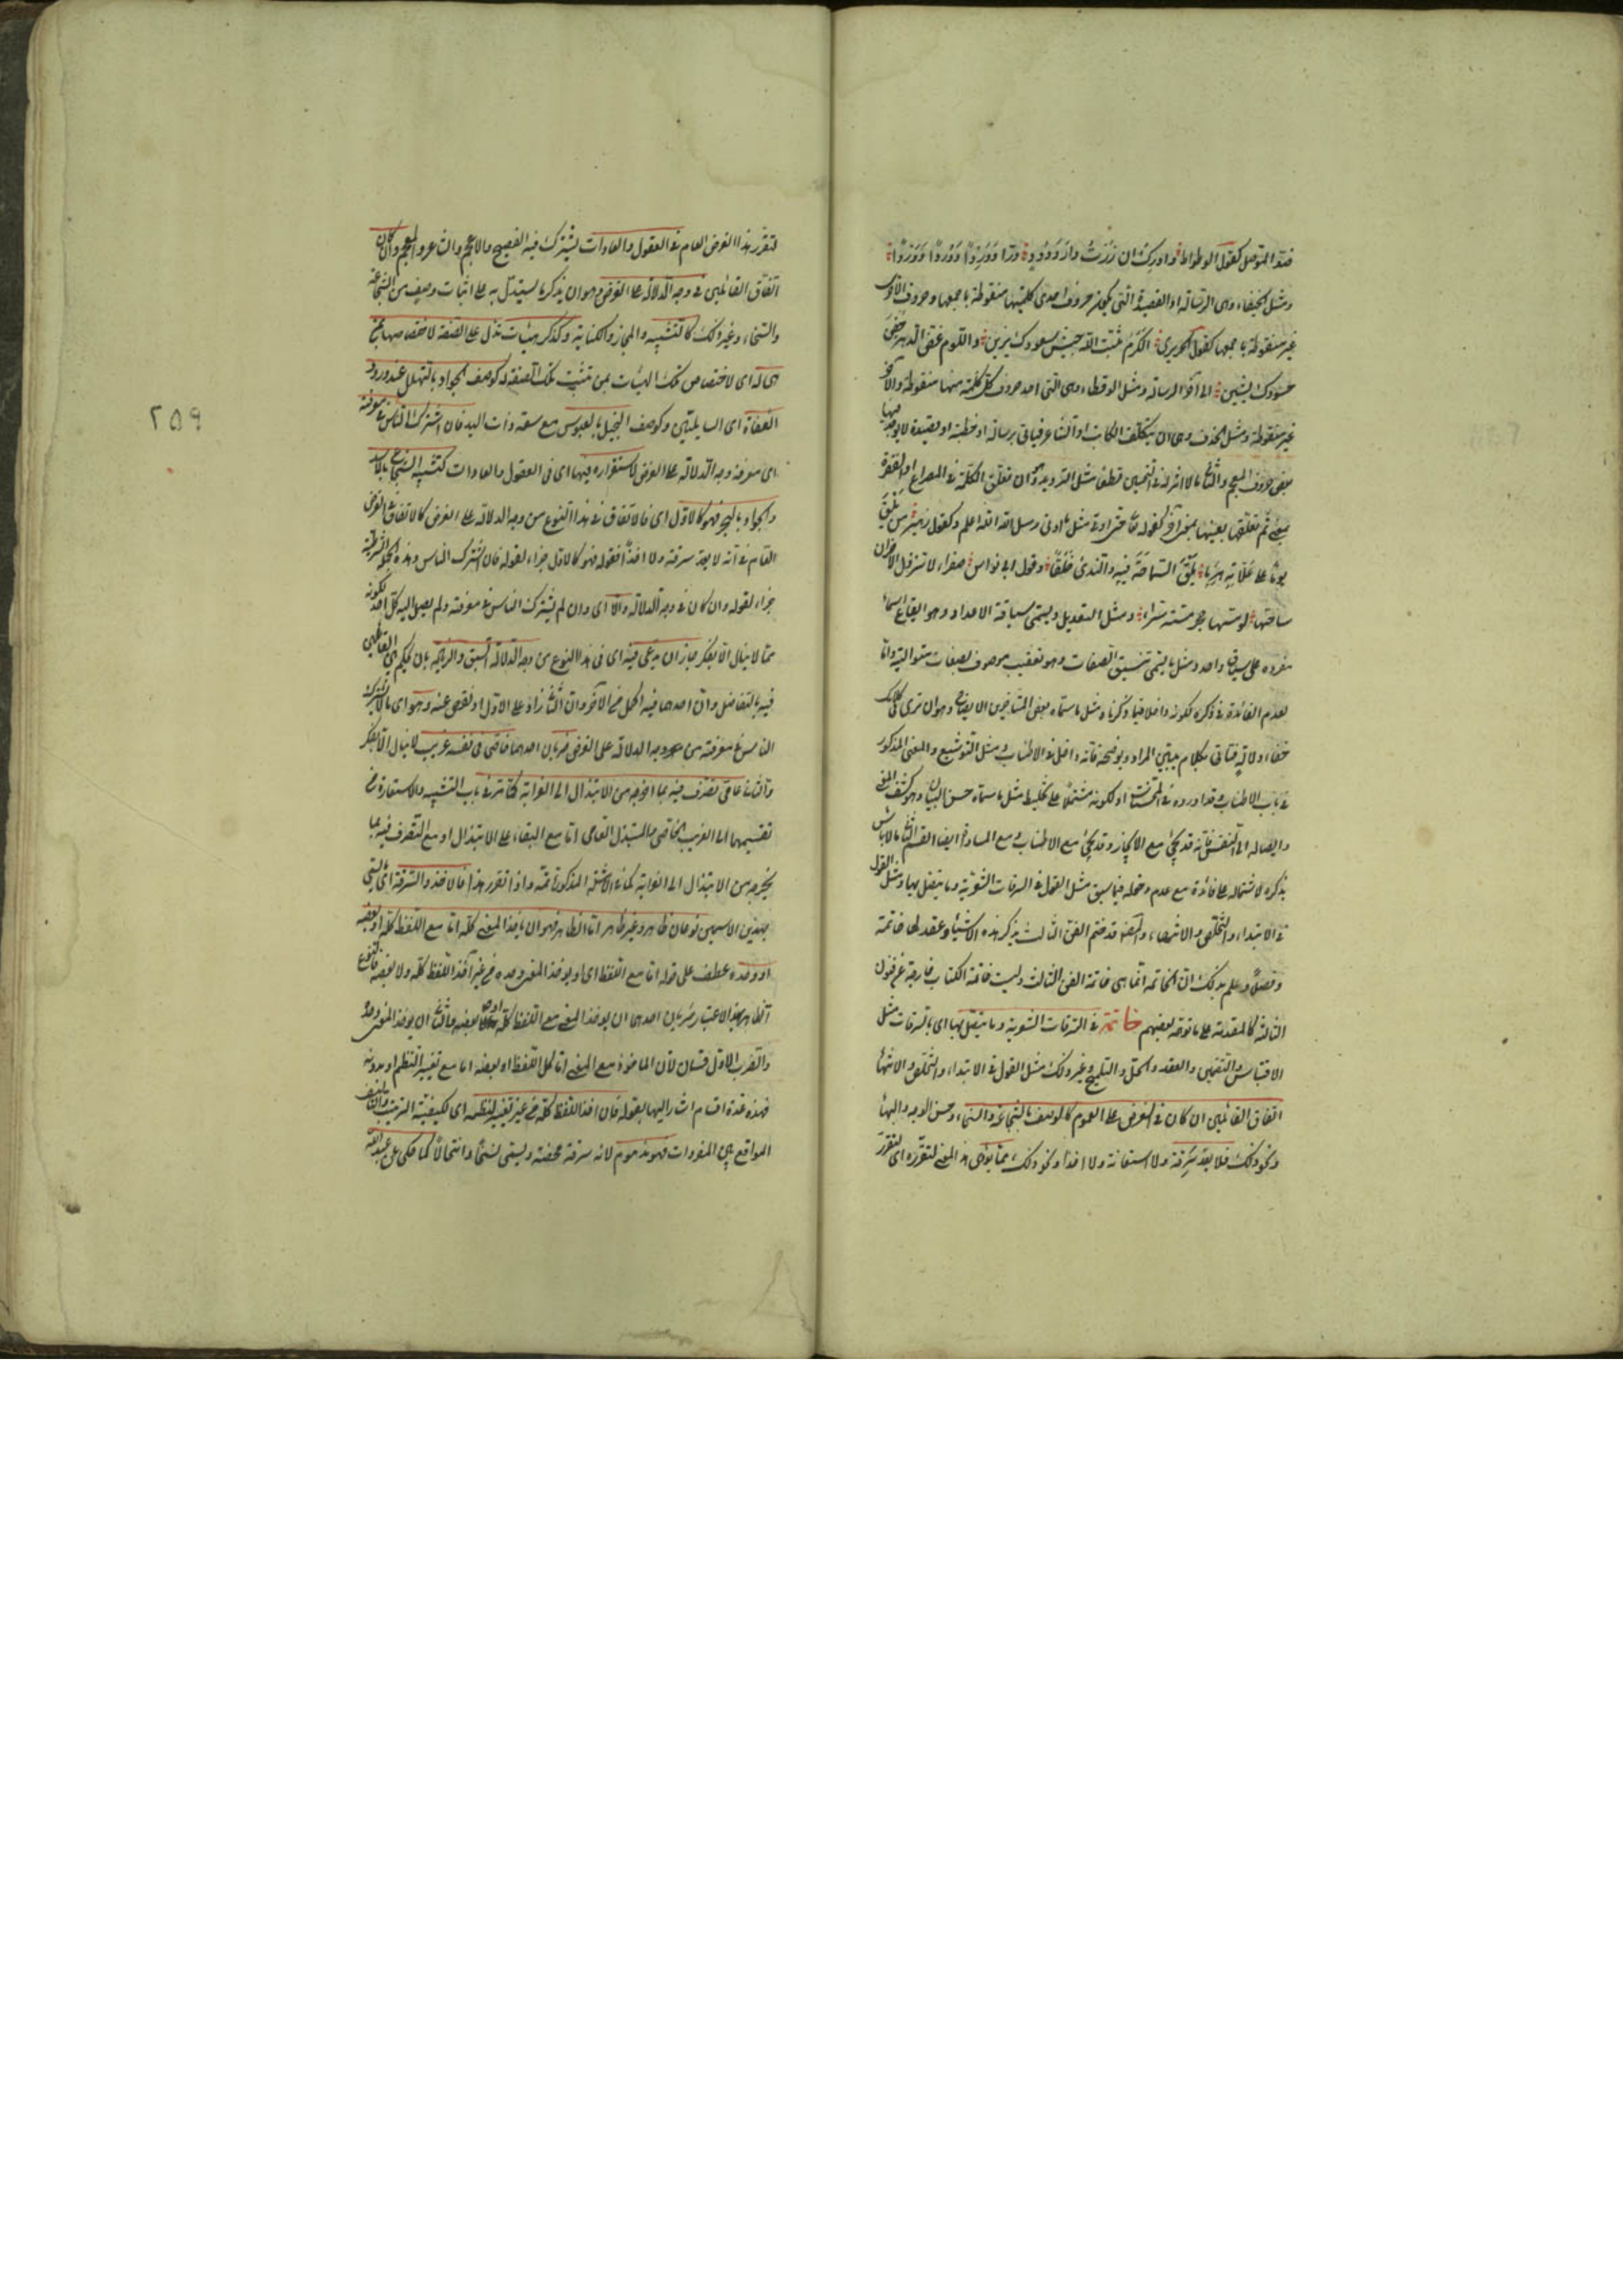 ضد الموصل كقول الوطواط وادركت ان زرت دار ودود درا ووردا ووردا ووردا
ومثل الخيفاء وهى الرسالة او القصيدة التى يكون حروف احدى كلمتيها منقوطة باجمعها وحروف الاخرى
غير منقوطة باجمعها كقول الحريرى الكرم ثبت الله جيش سعودك يزين واللؤم غض الدهر جفن
حسودك يشين الى آخر الرسالة ومثل الرقطاء وهى التى احد حروف كل كلمة منها منقوطة والآخر
غير منقوطة ومثل الحذف وهى ان يتكلف الكاتب او الشاعر فياتى برسالة او خطبة او قصيدة لا يوجد فيها
بعض حروف المعجم والثانى ما لا اثر له فى التحسين قطعا مثل الترديد وهو ان تعلق الكلمة فى المصراع او الفقرة
بمعنى ثم تعلقها بعينها بمعنى آخر كقوله تعالى حتى نؤتى مثل ما اوتى رسل الله الله اعلم وكقول زهير من يلق
يوما على علاته هرما يلق السماحة فيه والندى خلقا وقول ابى نواس صفراء لا تنزل الاحزان
ساحتها لو مسها حجر مسته سراء ومثل التعديد ويسمى سياقة الاعداد وهو ايقاع اسماء
مفردة على سياق واحد ومثل ما يسمى تنسيق الصفات وهو تعقيب موصوف بصفات متوالية واما
لعدم الفائدة فى ذكره لكونه داخلا فيما ذكرنا مثل ما سماه بعض المتاخرين الايضاح وهو ان ترى فى كلامك
خفاء دلالة فتاتى بكلام يبين المراد ويوضحه فانه داخل فى الاطناب ومثل التوشيع والمعنى المذكور
فى باب الاطناب قد اورده فى المحسنات او لكونه مشتملا على تخليط مثل ما سماه حسن البيان وهو كشف المعنى
وايصاله الى النفس فانه قد يجئ مع الايجاز وقد يجئ مع الاطناب ومع المساواة ايضا القسم الثانى ما لا باس
بذكره لاشتماله على فائدة مع عدم دخوله فيما سبق مثل القول فى السرقات الشعرية وما يتصل بها ومثل القول
فى الابتداء والتخلص والانتهاء والمصنف قد ختم الفن الثالث بذكر هذه الاشياء وعقد لها خاتمة
وفصلا وعلم بذلك ان الخاتمة انما هى خاتمة الفن الثالث وليست خاتمة الكتاب خارجة عن الفنون
الثلثة كالمقدمة على ما توهمه بعضهم خاتمة فى السرقات الشعرية وما يتصل بها اى بالسرقات مثل
الاقتباس والتضمين والعقد والحل والتلميح وغير ذلك مثل القول فى الابتداء والتخلص والانتهاء
اتفاق القائلين ان كان فى الغرض على العموم كالوصف بالشجاعة والسخاء وحسن الوجه والبهاء
ونحو ذلك فلا يعد سرقة ولا استعانة ولا اخذا ونحو ذلك مما يؤدى هذا المعنى لتقرره اى لتقرر
٢٥٩
لتقرر هذا الغرض العام فى العقول والعادات يشترك فيه الفصيح والاعجم والشاعر والمفحم وان كان
اتفاق القائلين فى وجه الدلالة على الغرض وهو ان يذكر ما يستدل به على اثبات وصف من الشجاعة
والسخاء وغير ذلك كالتشبيه والمجاز والكناية وكذكر هيئات تدل على الصفة لاختصاصها بمن
هى له اى لاختصاص تلك الهيئات بمن تثبت تلك الصفة له كوصف الجواد بالتهلل عند ورود
العفاة اى السائلين وكوصف البخيل بالعبوس مع سعة ذات اليد فان اشترك الناس فى معرفته
اى معرفة وجه الدلالة على الغرض لاستقراره فيهما اى فى العقول والعادات كتشبيه الشجاع بالاسد
والجواد بالبحر فهو كالاول اى فالاتفاق فى هذا النوع من وجه الدلالة على الغرض كالاتفاق فى الغرض
العام فى انه لا يعد سرقة ولا اخذا فقوله فهو كالاول جزاء لقوله فان اشترك الناس وهذه الجملة الشرطية
جزاء لقوله وان كان فى وجه الدلالة والا اى وان لم يشترك الناس فى معرفته ولم يصل اليه كل احد لكونه
مما لا ينال الا بفكر جاز ان يدعى فيه اى فى هذا النوع من وجه الدلالة السبق والزيادة بان يحكم بين القائلين
فيه بالتفاضل وان احدهما فيه اكمل من الآخر وان الثانى زاد على الاول او نقص عنه وهو اى ما لا يشترك
الناس فى معرفته من وجه الدلالة على الغرض ضربان احدهما خاصى فى نفسه غريب لا ينال الا بفكر
والثانى عامى تصرف فيه بما اخرجه من الابتذال الى الغرابة كما مر فى باب التشبيه والاستعارة من
تقسيمهما الى الغريب الخاصى والمبتذل العامى اما مع البقاء على الابتذال او مع التصرف فيه بما
يخرجه من الابتذال الى الغرابة كما فى الامثلة المذكورة ثمة واذا تقرر هذا فالاخذ والسرقة اى ما يسمى
بهذين الاسمين نوعان ظاهر وغير ظاهر اما الظاهر فهو ان ياخذ المعنى كله اما مع اللفظ كله او بعضه
او وحده عطف على قوله اما مع اللفظ اى او يؤخذ المعنى وحده من غير اخذ اللفظ كله ولا بعضه فالنوع
الظاهر بهذا الاعتبار ضربان احدهما ان يؤخذ المعنى مع اللفظ كله او بعضه والثانى ان يؤخذ المعنى وحده
والضرب الاول قسمان لان الماخوذ مع المعنى اما كل اللفظ او بعضه اما مع تغيير النظم او بدونه
فهذه عدة اقسام اشار اليها بقوله فان اخذ اللفظ كله من غير تغيير لنظمه اى لكيفية الترتيب والتاليف
الواقع بين المفردات فهو مذموم لانه سرقة محضة ويسمى نسخا وانتحالا كما حكى عن عبد الله